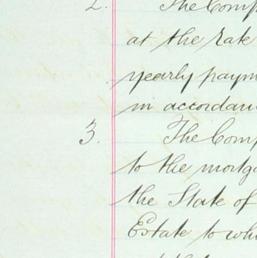 2. The Comp
at the rate
yearly paym
in accordan
3. The Comp
to the mortga
the State of
Estate to wh